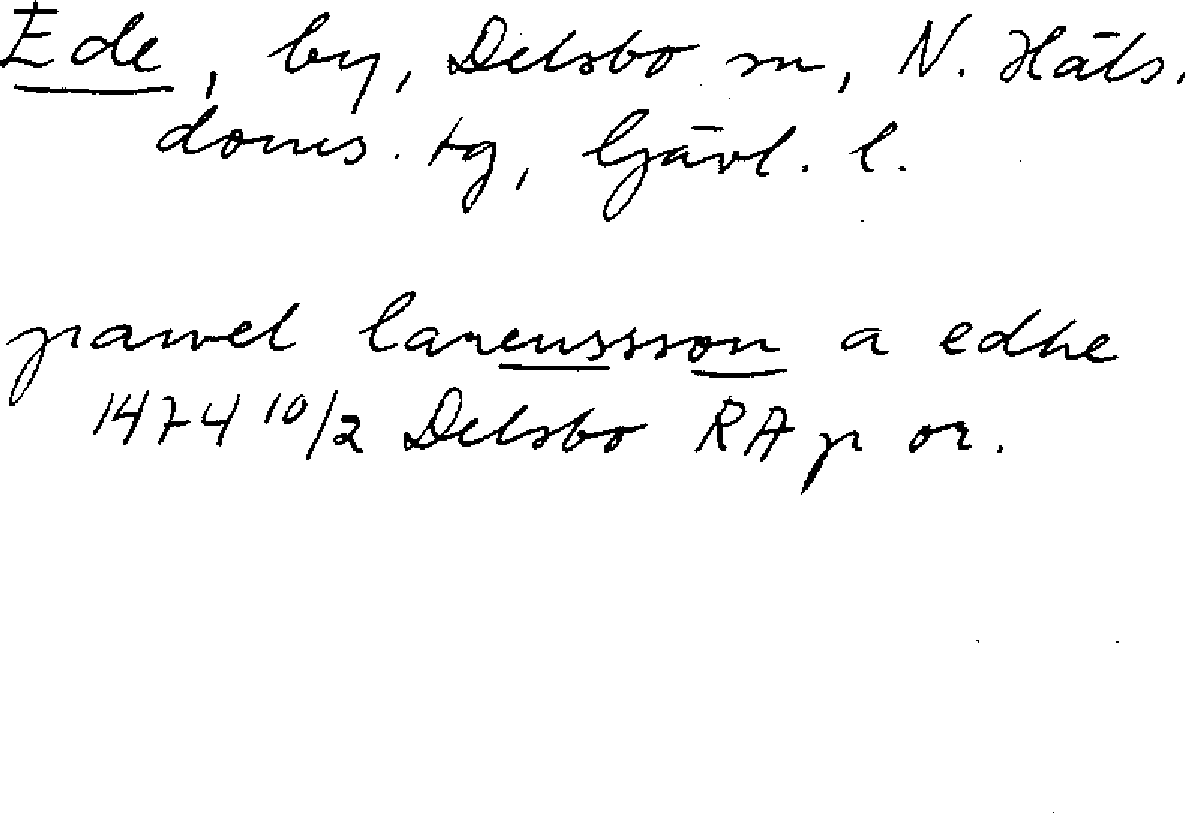 Ede, by, Delsbo sn, N. Häls.
doms. tg, Gävl. l.
pawel larenssson a edhe
1474 10/2 Delsbo RA p or.